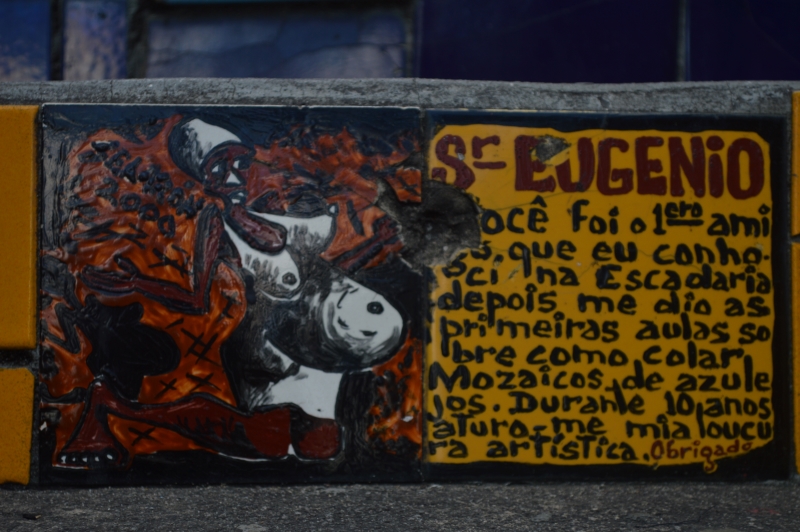 Sr EUGENiO
ocê foi o 1ero ami
que eu conho.
ci na Escadaria
depois me dio as
primeiras aulas so
bre como colar
Mozaicos de azule
jos. Durante 10 anos
aturo-me mia loucu
ra artística. Obrigado